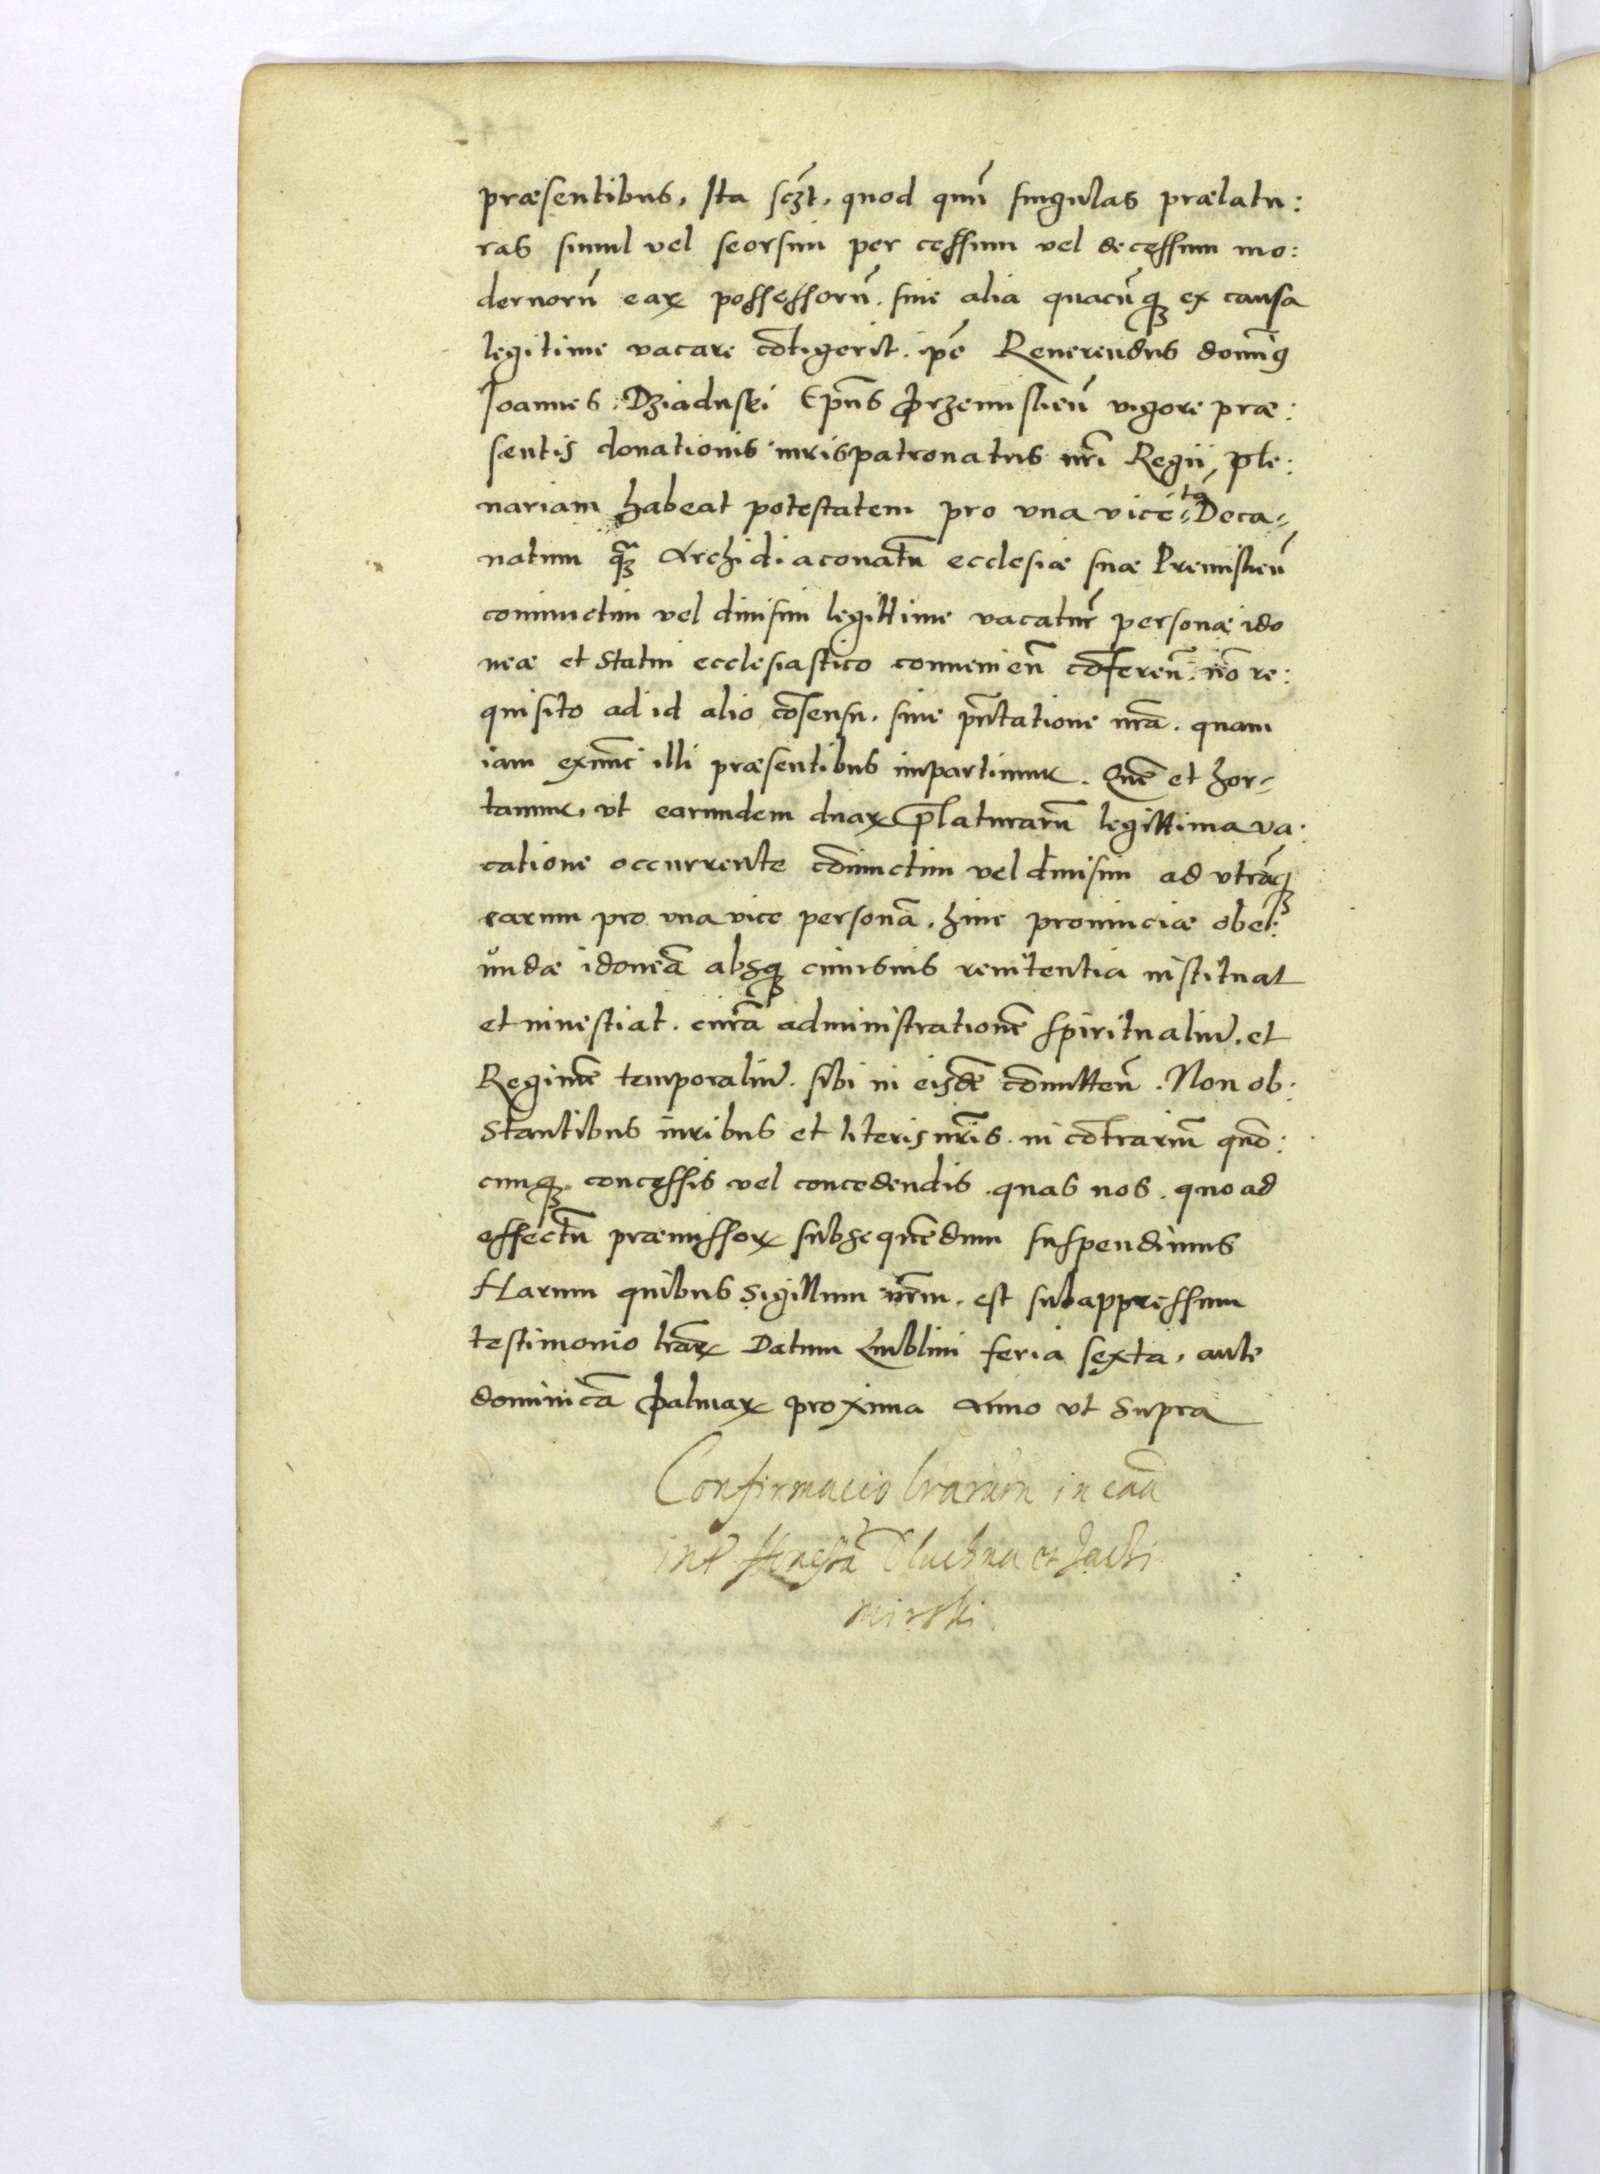 præsentibus, Ita scz̃t, quod quũ singulas prælatu:
ras simul vel seorsim per cessum vel decessum mo:
dernorũ eaꝝ possessorũ. siue alia quacũqꝫ ex causa
legitime vacare cõtigerit. ip̃e Reuerendus domĩꝯ
Ioannes Dziaduski Ep̃us Przemislieñ vigore præ:
sentis donationis iurispatronatus nr̃i Regii, ple:
nariam habeat potestatem pro vna vice tã Deca-
natum quã Archidiaconatũ ecclesiæ suæ Premislieñ
coniunctim vel diuisim legittime vacatur̃ personæ ido
neæ et statui ecclesiastico conuenieñ cõfereñ. nõ re:
quisito ad id alio cõsensu. siue pñtatione nr̃a. quam
iam exnũc illi præsentibus impartimur. Quẽ et hor-
tamur, vt earundem duaꝝ p̃laturarũ legittima va:
catione occurrente cõiunctim vel diuisim ad vtrãqꝫ
earum pro vna vice personã, huic prouinciæ obe:
undæ idoneã absqꝫ cuiusuis renitentia instituat
et inuestiat. curã administrationẽ spiritualiũ. et
Regimẽ temporaliũ. sibi in eisdẽ cõmitteñ. Non ob:
stantibus iuribus et literis nr̃is. in cõtrariũ quo:
cunqꝫ concessis vel concedendis. quas nos. quo ad
effectũ præmissoꝝ subsequẽdum suspendimus
Harum quibus sigillum nr̃m. est subappressum
testimonio lr̃aꝝ Datum Lublini feria sexta, ante
dominicã palmaꝝ proxima Anno vt supra
Confirmacio lrarum in cãa
int
nirski